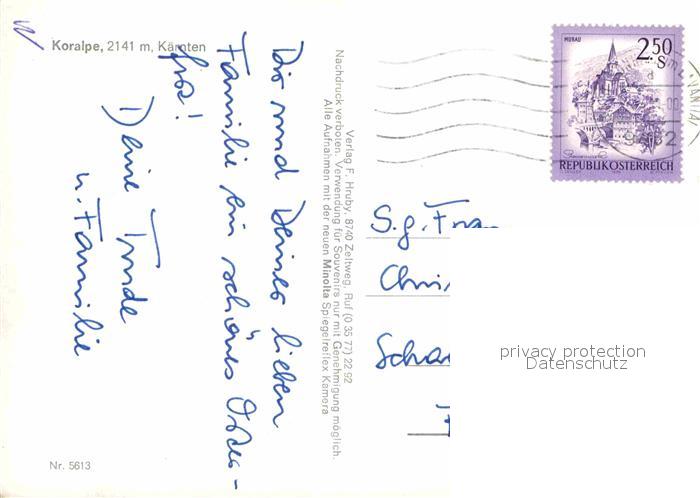 Koralpe, 2141 m, Kärnten
Dir und Deiner lieben
Familie ein schönes Oster-
fest!
Deine Trude
u. Familie
Nr. 5613
Verlag F. Hruby, 8740 Zeltweg, Ruf (0 35 77) 22 92
Nachdruck verboten. Verwendung für Souvenirs nur mit Genehmigung möglich.
Alle Aufnahmen mit der neuen Minolta Spiegelreflex Kamera
MURAU
2.50
S
REPUBLIK ÖSTERREICH
S.g. Frau
privacy protection
Datenschutz